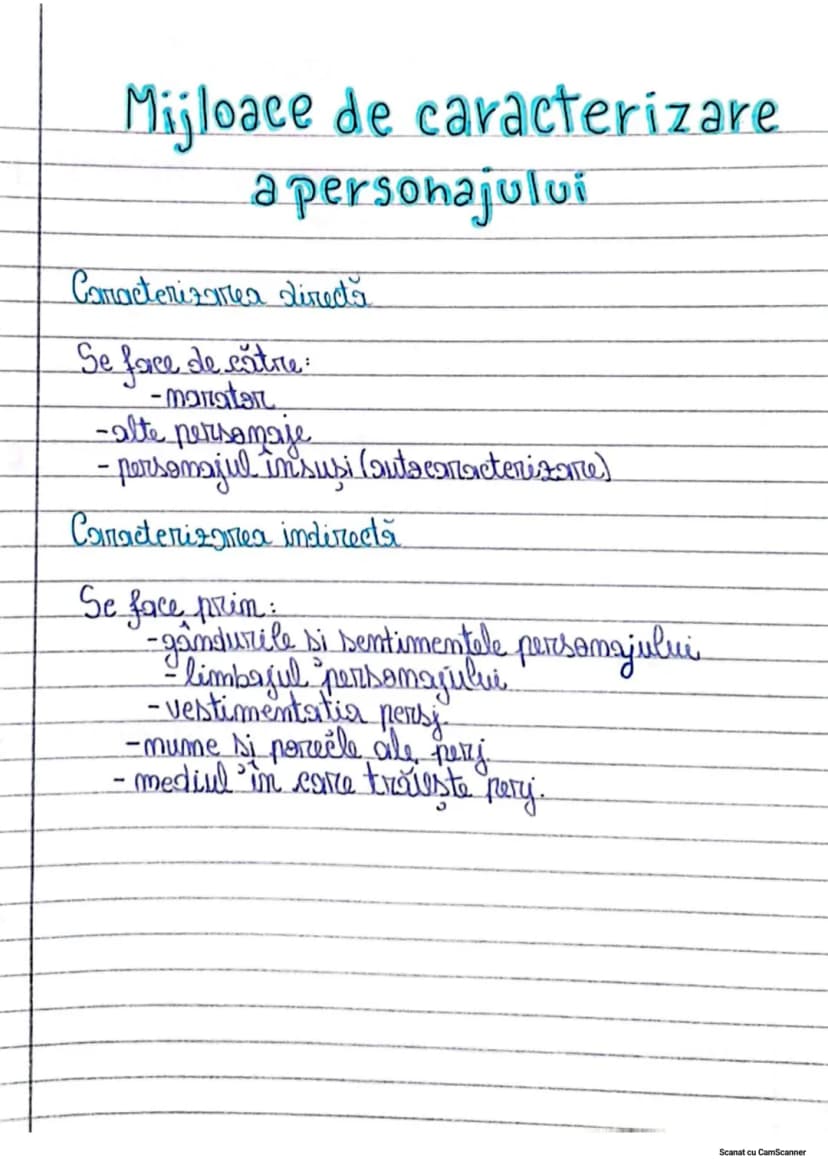 Mijloace de caracterizare
a personajului
Caracterizarea directă
Se face de către:
-narator
-alte personaje
- personajul însuși (autocaracterizare)
Caracterizarea indirectă
Se face prin:
-gândurile și sentimentele personajului
- limbajul personajului
-vestimentatia persj.
-nume și porecle ale perj.
- mediul în care trăiește perj.
Scanat cu CamScanner